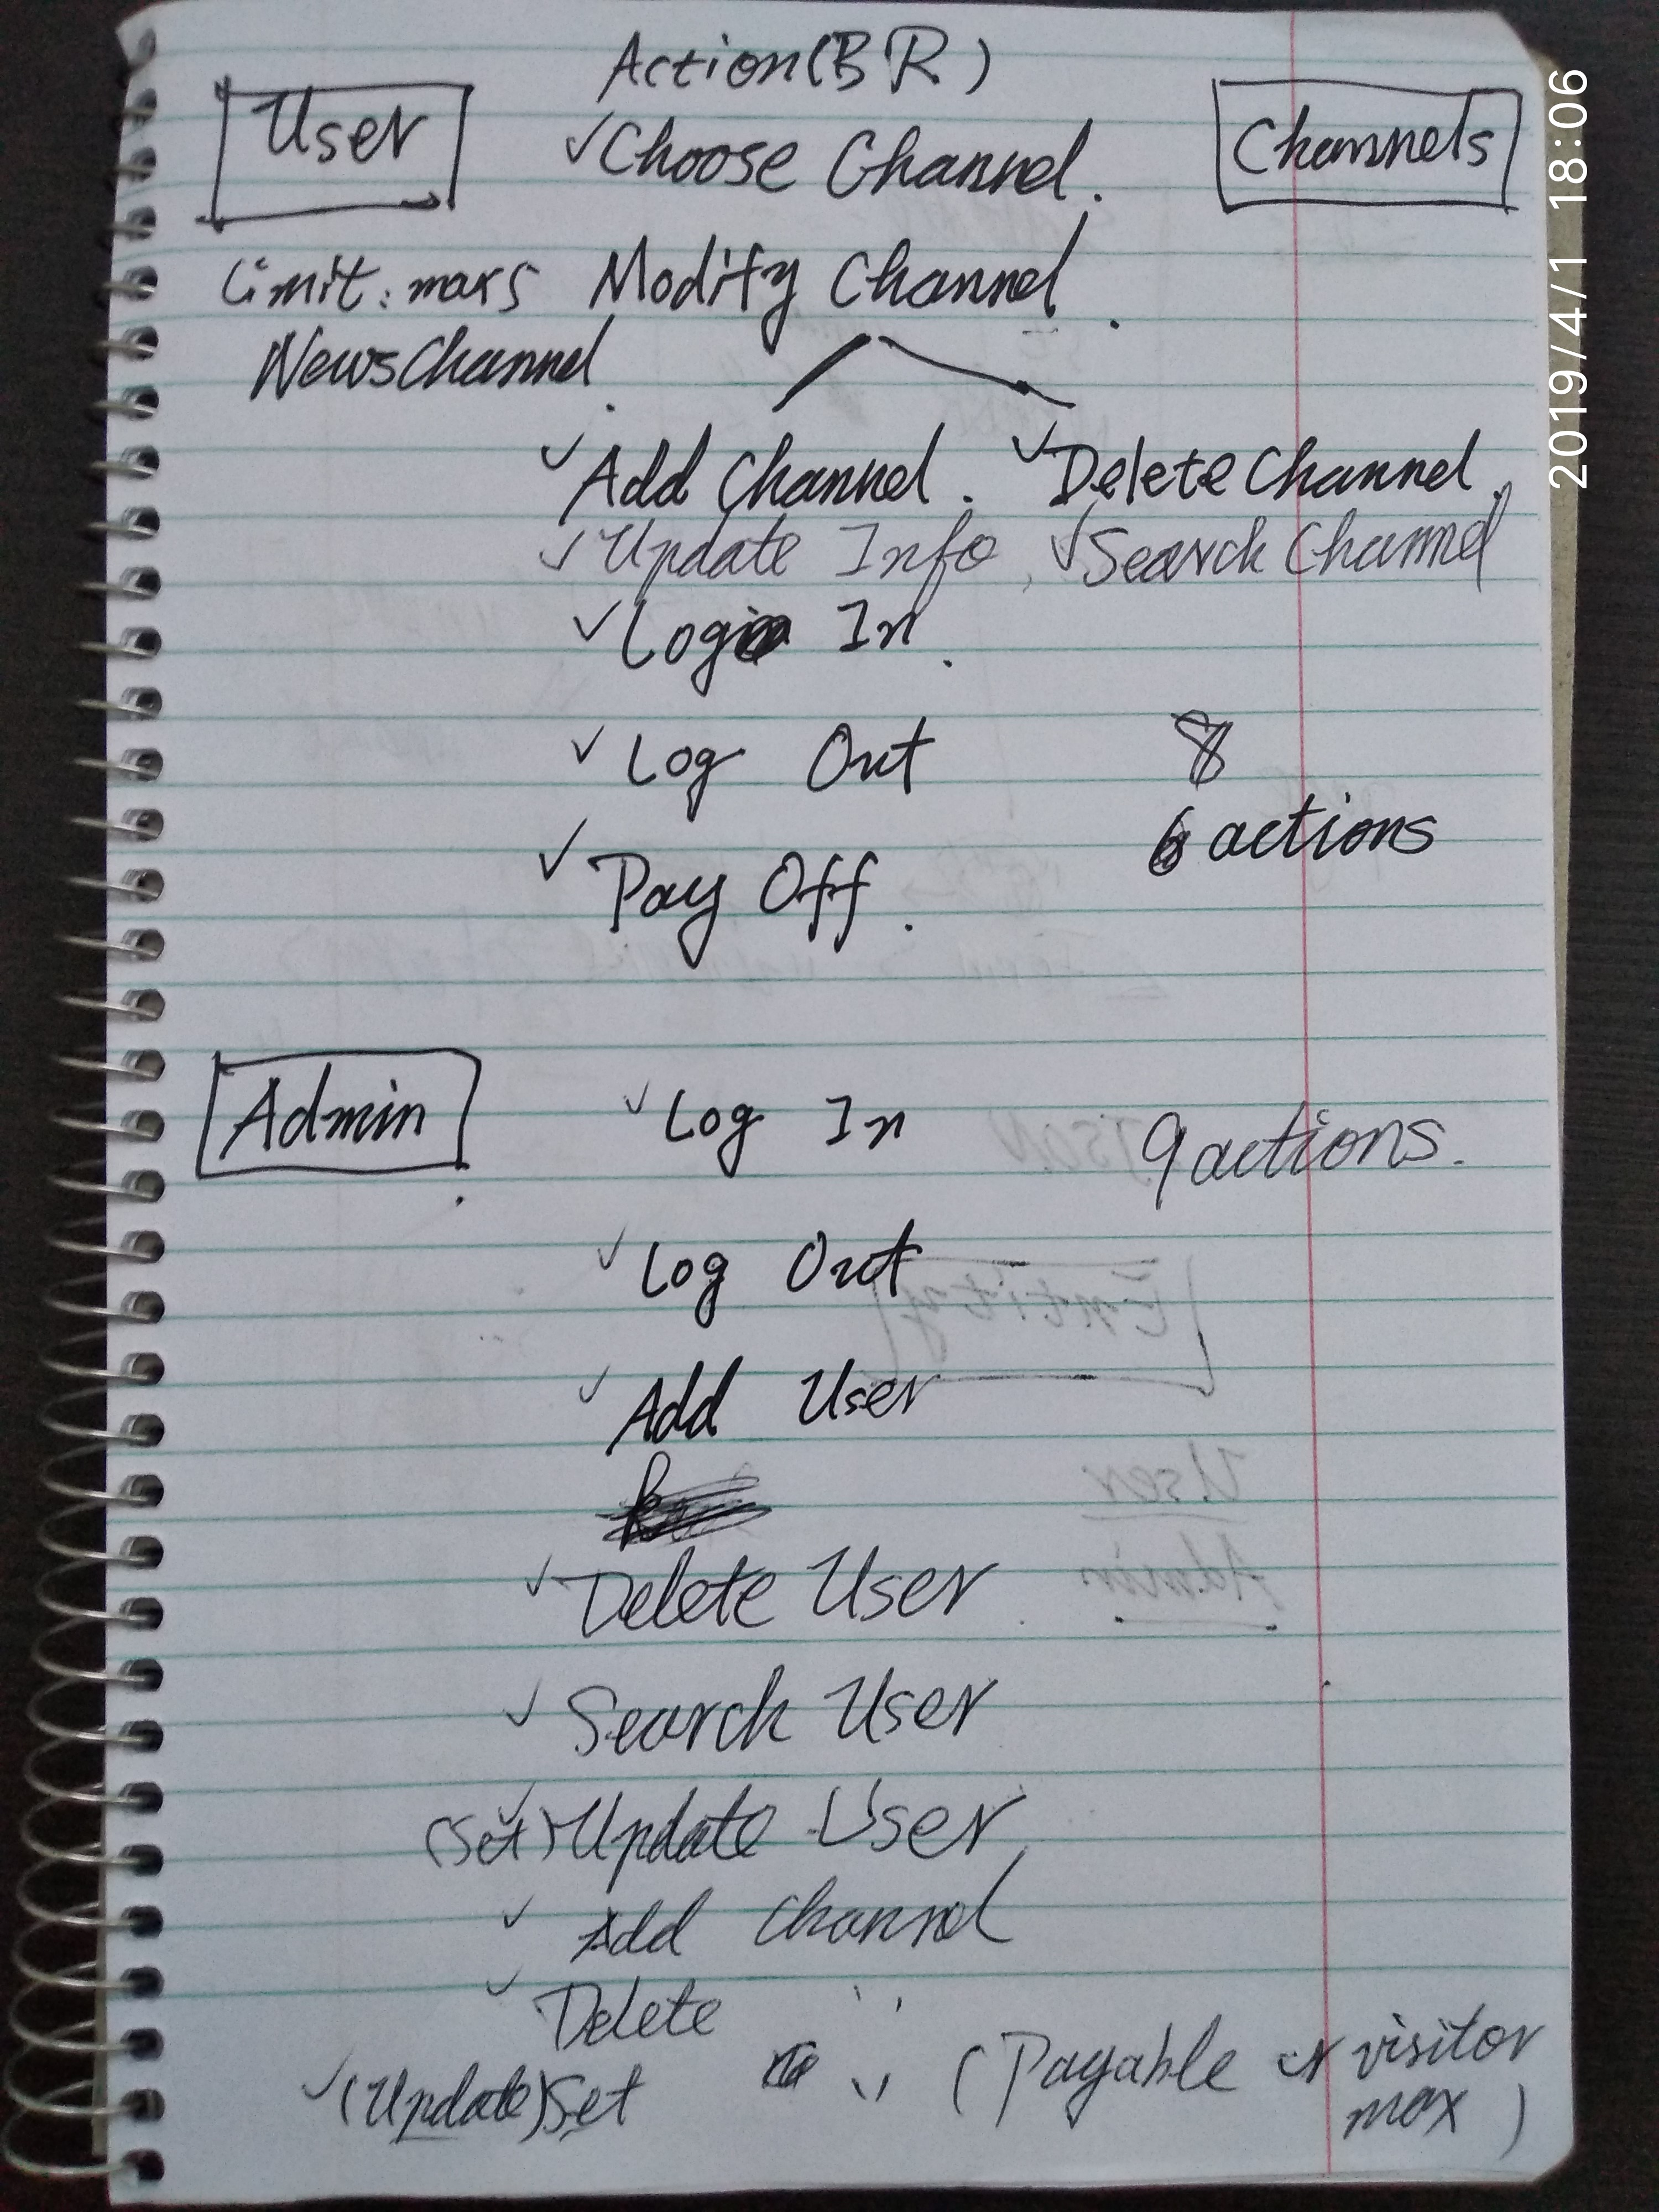 Action(BR)
User
✓Choose Channel.
Channels
Limit: max 5 Modify Channel.
NewsChannel.
✓Add Channel. ✓Delete Channel.
✓Update Info, ✓Search Channel
✓Log In.
✓Log Out 8
✓Pay Off. 6 actions
Admin ✓Log In 9 actions.
✓Log Out
Entity
✓Add User
User
✓Delete User
Admin
✓Search User
✓(Set) Update User
✓Add Channel
✓Delete 〃
✓(Update)Set 〃 (Payable or visitor
max)
JSON
2019/4/1 18:06